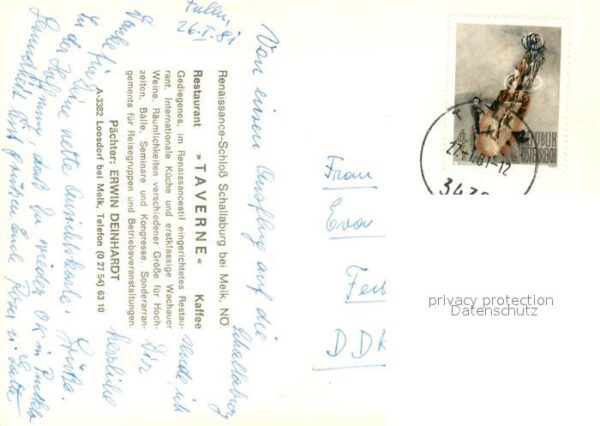 Tulln,
26.I.81
Von einem Ausflug auf die
Schallaburg sende ich
Dir herzliche
Grüße.
Renaissance-Schloß Schallaburg bei Melk, NÖ.
Restaurant »TAVERNE« Kaffee
Gediegenes, im Renaissancestil eingerichtetes Restau-
rant. Internationale Küche und erstklassige Wachauer
Weine. Räumlichkeiten verschiedener Größe für Hoch-
zeiten, Bälle, Seminare und Kongresse. Sonderarran-
gements für Reisegruppen und Betriebsveranstaltungen.
Pächter: ERWIN DEINHARDT
A-3382 Loosdorf bei Melk, Telefon (0 27 54) 63 10
Dank für
Deine nette
In der Hoffnung, daß Du wieder OK
REPUBLIK
ÖSTERREICH
27.-1.81-12
343
Frau
Eva
DDR
privacy protection
Datenschutz